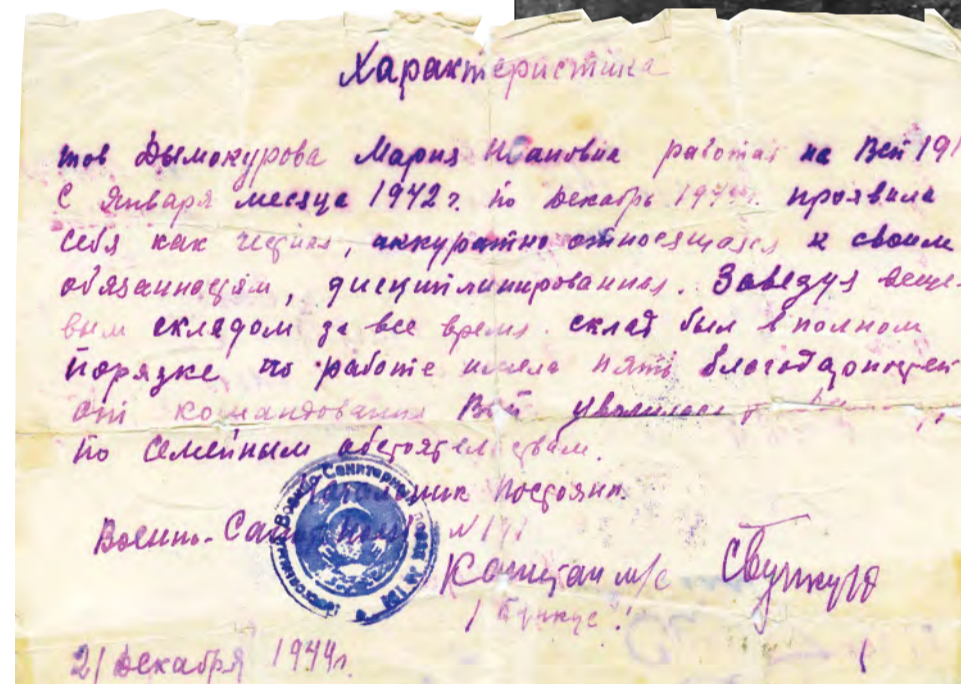 Характеристика
тов Дымокурова Мария Ивановна работала на Всп 191
С Января месяца 1942 г. по декабрь 1944 г. проявила
себя как честная, аккуратно относящаяся к своим
обязанностям, дисциплинированная. Заведуя веще-
вым складом за все время склад был в полном
порядке по работе имела пять благодарностей
от командования Всп уволилась
по семейным обстоятельствам.
Начальник Постоянн.
Военно-Сан N 191
Капитан м/с
21 декабря 1944 г.